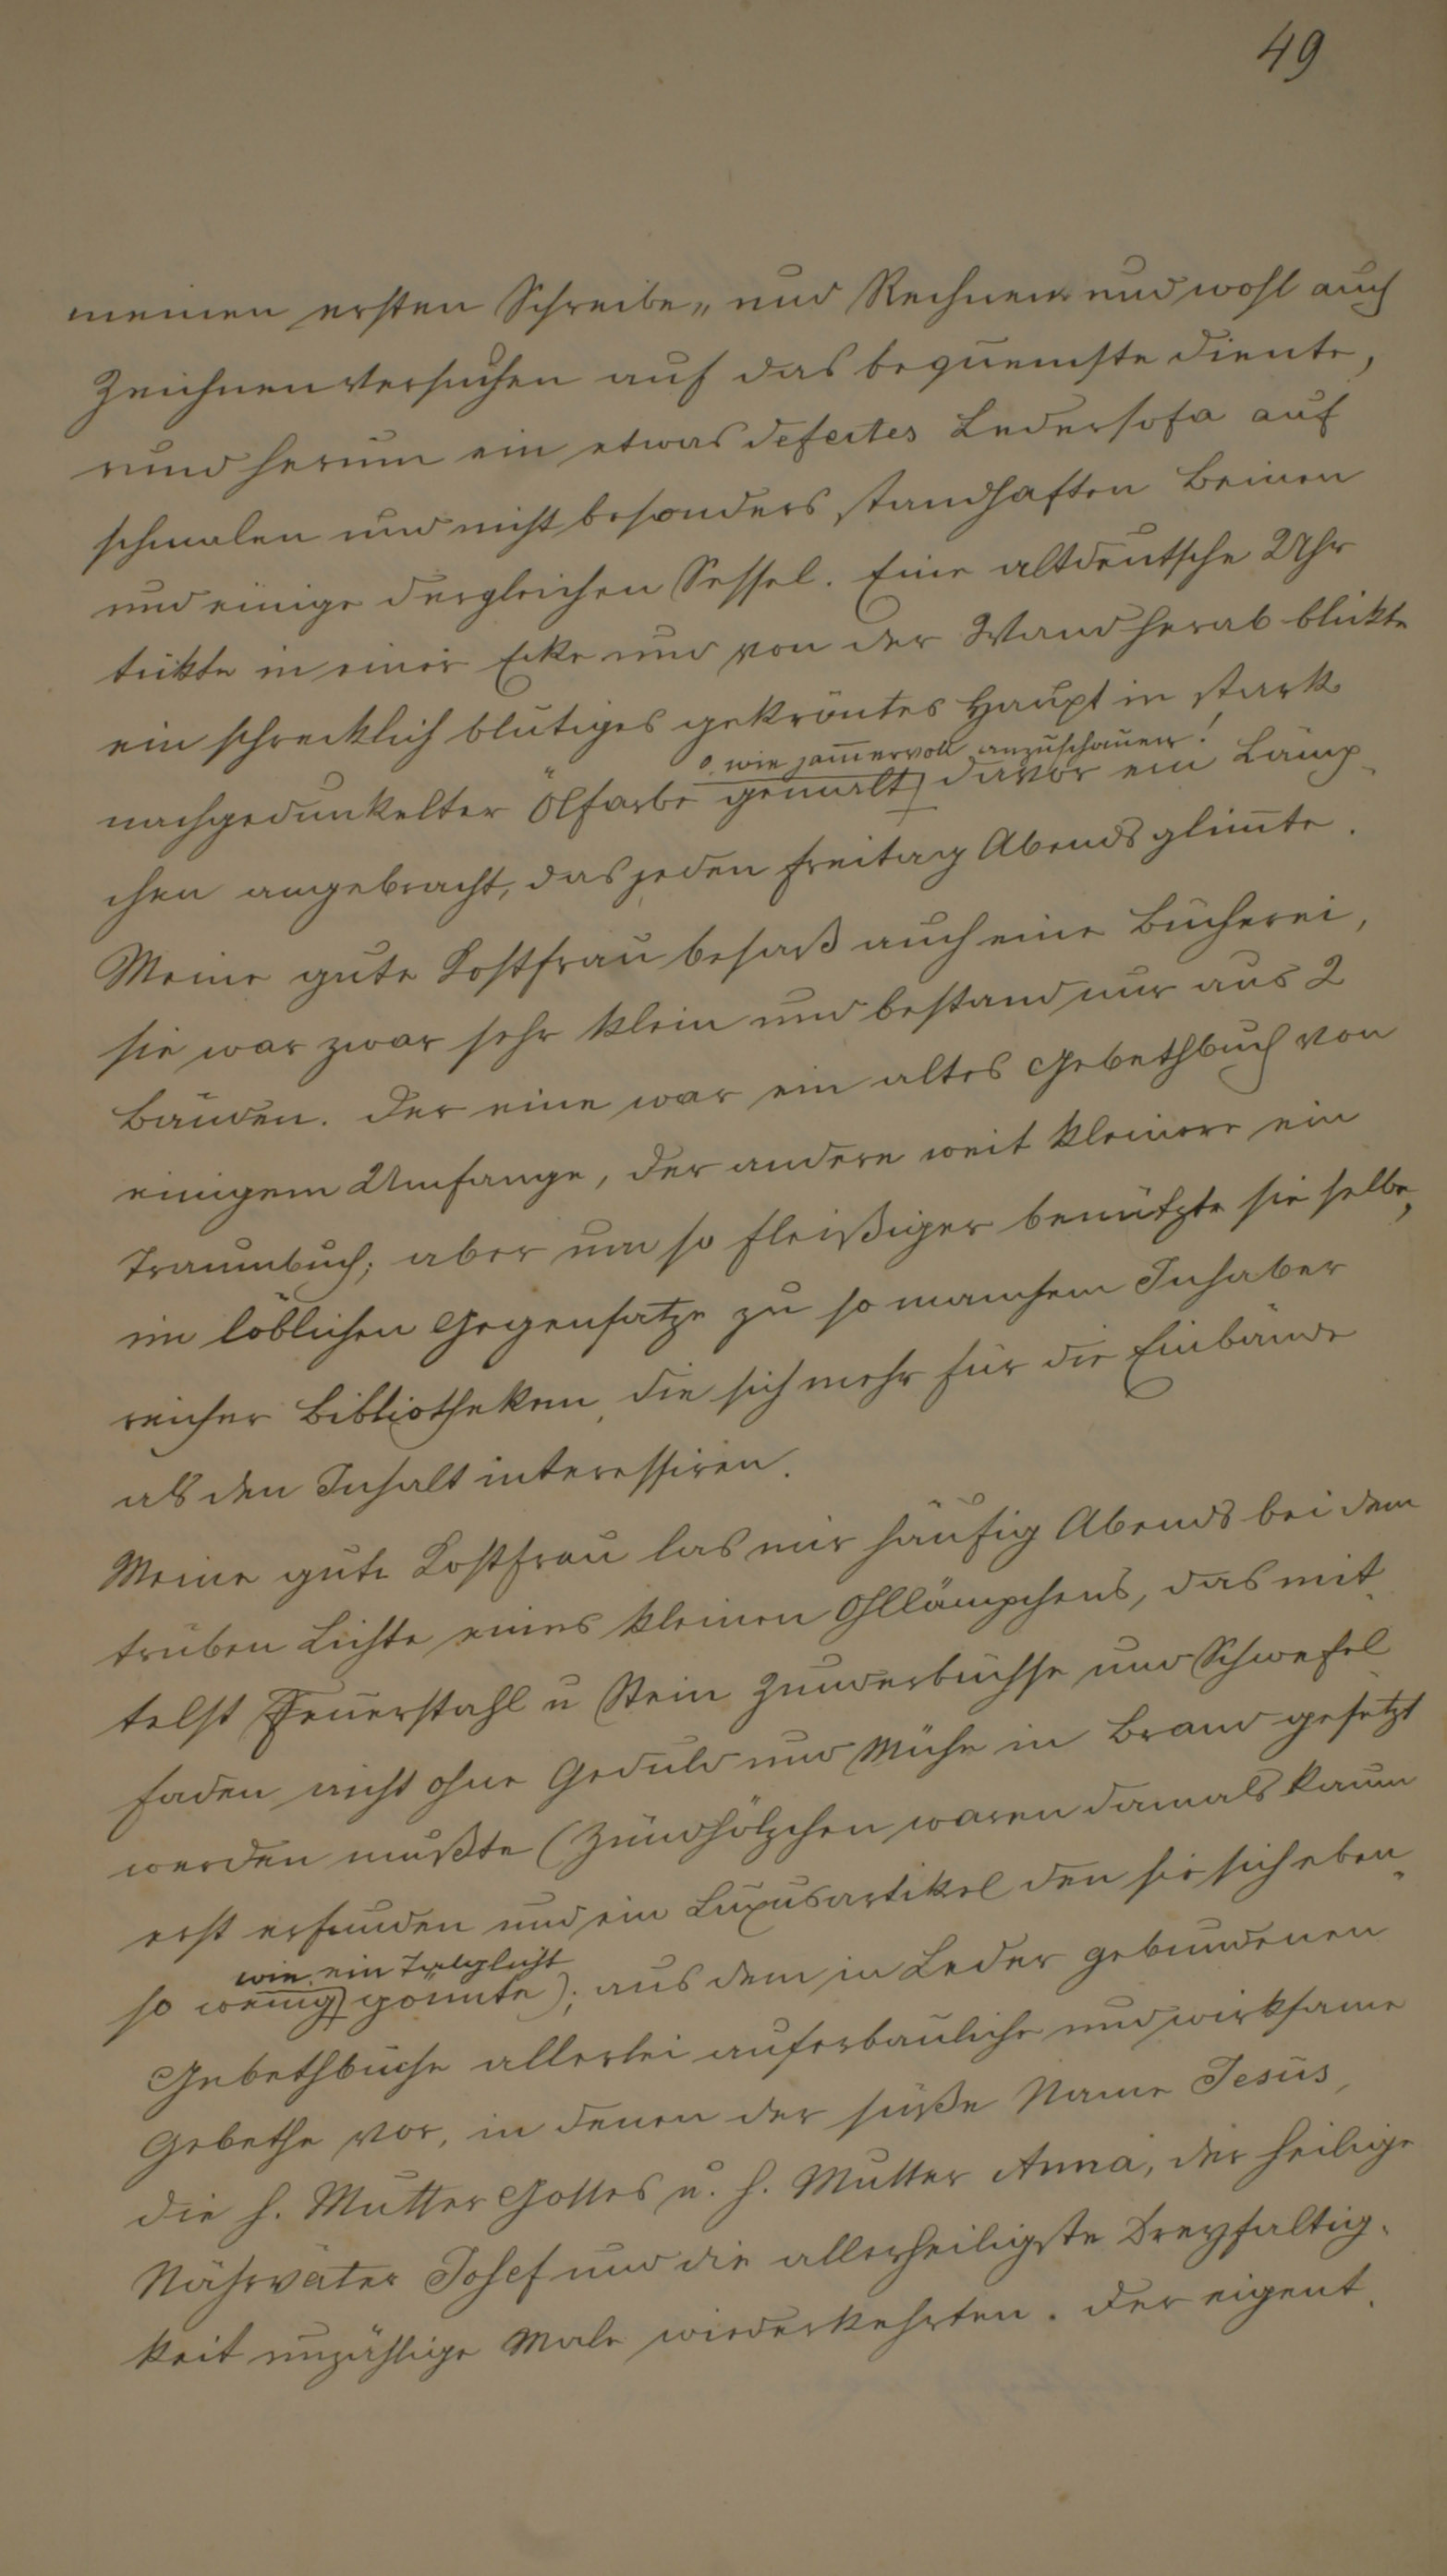 49
meinen ersten Schreibe- und Rechnen und wohl auch
Zeichnenversuchen auf das bequemste diente,
rund herum ein etwas defectes Ledersofa auf
schmalen und nicht besonders standhaften Beinen
und einige dergleichen Sessel. Eine altdeutsche Uhr
tickte in einer Ecke und von der Wand herab blickte
ein schrecklich blutiges gekröntes Haupt in stark
o wie jam̄ervoll anzuschauen!
nachgedunkelter Ölfarbe gemalt davor ein Lämp-
chen angebracht, das jeden Freitag Abends glim̄te.
Meine gute Kostfrau besaß auch eine Bücherei,
sie war zwar sehr klein und bestand nur aus 2
Bänden. Der eine war ein altes Gebethbuch von
einigem Umfange, der andere weit kleinere ein
Traumbuch; aber um so fleißiger benützte sie selbe,
im löblichen Gegensatze zu so manchem Inhaber
reicher Bibliotheken, die sich mehr für die Einbände
als den Inhalt interessiren.
Meine gute Kostfrau las mir häufig Abends bei dem
trüben Lichte eines kleinen Ohllämpchens, das mit-
telst Feuerstahl u Stein Zunderbüchse und Schwefel-
faden nicht ohne Geduld und Mühe in Brand gesetzt
werden mußte (Zündhölzchen waren damals kaum
erst erfunden und ein Luxusartikel den sie sich eben-
wie ein Talglicht
so wenig gönnte); aus dem in Leder gebundenen
Gebethbuche allerlei auferbauliche und wirksame
Gebethe vor, in denen der süße Name Jesus,
die h. Mutter Gottes u. h. Mutter Anna, der heilige
Nährvater Josef und die allerheiligste Dreyfaltig-
keit unzählige Male wiederkehrten. Der eigent-